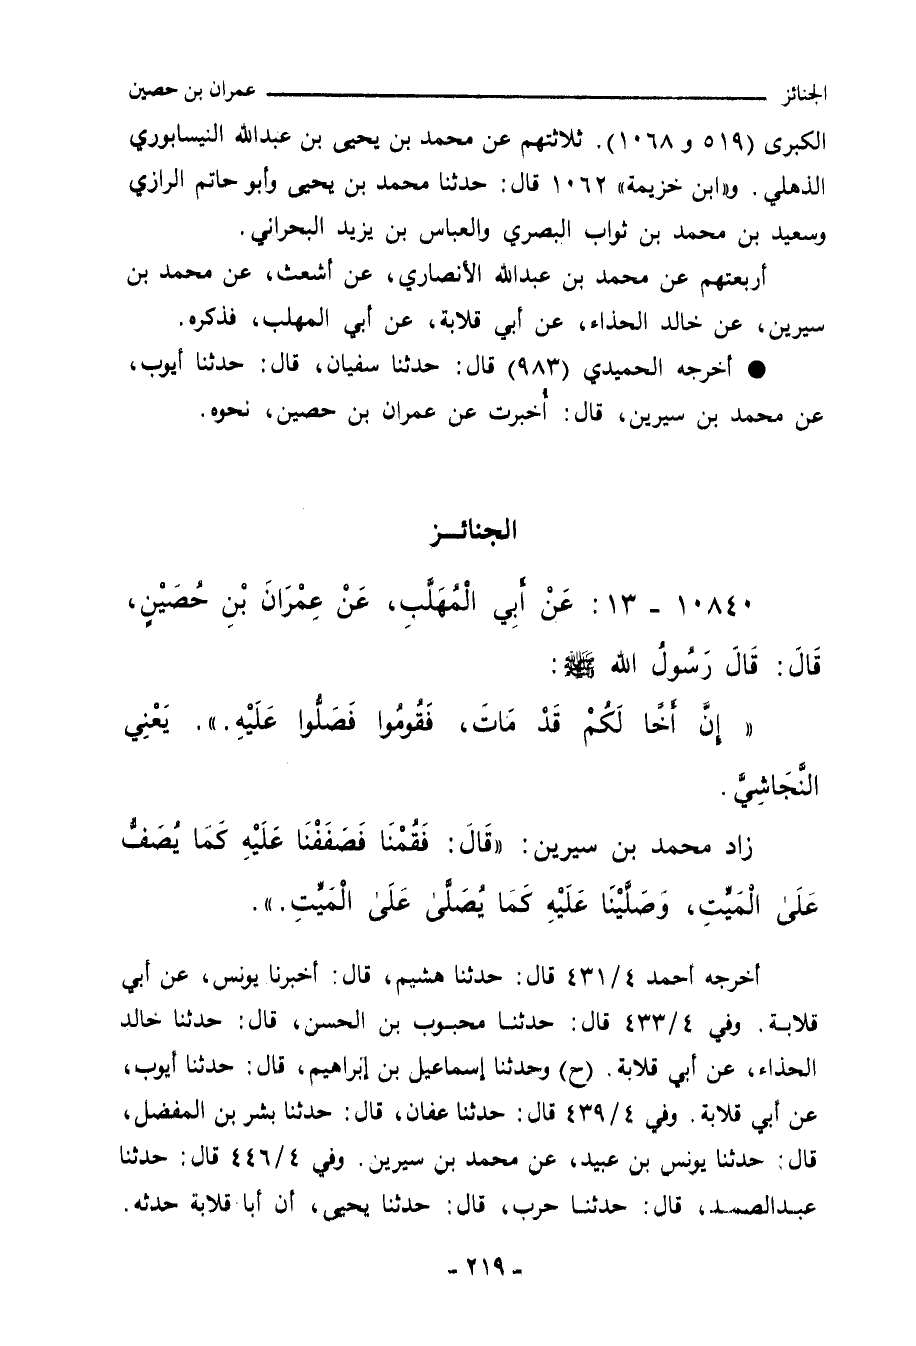 الجنائز ــــــــــــــــــــ عمران بن حصين
الكبرى (٥١٩ و ١٠٦٨). ثلاثتهم عن محمد بن يحيى بن عبدالله النيسابوري
الذهلي. و«ابن خزيمة» ١٠٦٢ قال: حدثنا محمد بن يحيى وأبو حاتم الرازي
وسعيد بن محمد بن ثواب البصري والعباس بن يزيد البحراني.
أربعتهم عن محمد بن عبدالله الأنصاري، عن أشعث، عن محمد بن
سيرين، عن خالد الحذاء، عن أبي قلابة، عن أبي المهلب، فذكره.
● أخرجه الحميدي (٩٨٣) قال: حدثنا سفيان، قال: حدثنا أيوب،
عن محمد بن سيرين، قال: أُخبرت عن عمران بن حصين، نحوه.
الجنائـــز
١٠٨٤٠ - ١٣: عَنْ أَبِي الْمُهَلَّبِ، عَنْ عِمْرَانَ بْنِ حُصَيْنٍ،
قَالَ: قَالَ رَسُولُ الله ﷺ:
« إِنَّ أَخًا لَكُمْ قَدْ مَاتَ، فَقُومُوا فَصَلُّوا عَلَيْهِ.». يَعْنِي
النَّجَاشِيَّ.
زاد محمد بن سيرين: «قَالَ: فَقُمْنَا فَصَفَفْنَا عَلَيْهِ كَمَا يُصَفُّ
عَلَىٰ الْمَيِّتِ، وَصَلَّيْنَا عَلَيْهِ كَمَا يُصَلَّىٰ عَلَىٰ الْمَيِّتِ.».
أخرجه أحمد ٤/ ٤٣١ قال: حدثنا هشيم، قال: أخبرنا يونس، عن أبي
قلابـة. وفي ٤/ ٤٣٣ قال: حدثنـا محبـوب بن الحسن، قال: حدثنا خالد
الحذاء، عن أبي قلابة. (ح) وحدثنا إسماعيل بن إبراهيم، قال: حدثنا أيوب،
عن أبي قلابة. وفي ٤/ ٤٣٩ قال: حدثنا عفان، قال: حدثنا بشر بن المفضل،
قال: حدثنا يونس بن عبيد، عن محمد بن سيرين. وفي ٤/ ٤٤٦ قال: حدثنا
عبـدالصمـد، قال: حدثنـا حرب، قال: حدثنا يحيى، أن أبا قلابة حدثه.
- ٢١٩ -